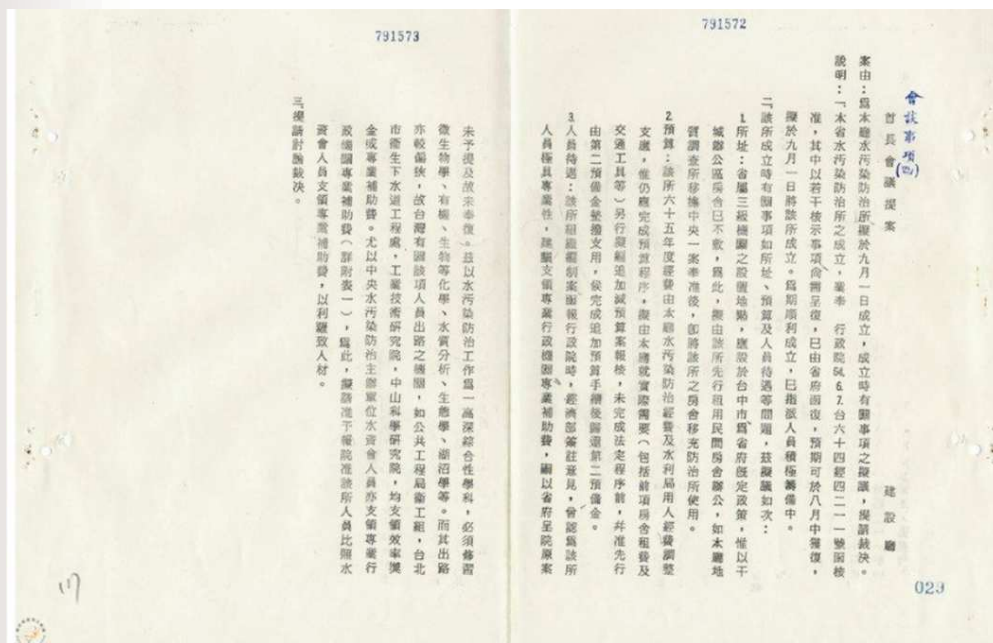 791572
會談事項(四)
首長會議提案
建設廳
案由：為本廳水污染防治所擬於九月一日成立，成立時有關事項之擬議，提請裁決。
說明：一、本省水污染防治所之成立，業奉　行政院64.6.7.台六十四經四二一一號函核
准，其中以若干核示事項尚需呈復，已由省府函復，預期可於八月中獲復，
擬於九月一日將該所成立。為期順利成立，已指派人員積極籌備中。
二、該所成立時有關事項如所址、預算及人員待遇等問題，茲擬議如次：
1.所址：省屬三級機關之設置地點，應設於台中市為省府既定政策，惟以干
城辦公區房舍已不敷，為此，擬由該所先行租用民間房舍辦公，如本廳地
質調查所移撥中央一案奉准後，即將該所之房舍移充防治所使用。
2.預算：該所六十五年度經費由本廳水污染防治經費及水利局用人經費調整
支應，惟仍應完成預算程序，擬由本廳就實際需要（包括前項房舍租費及
交通工具等）另行擬編追加減預算案報核，未完成法定程序前，并准先行
由第二預備金墊撥支用，俟完成追加預算手續後歸還第二預備金。
3.人員待遇：該所組織編制案函報行政院時，經濟部簽註意見，曾認為該所
人員極具專業性，建議支領專業行政機關專業補助費，嗣以省府呈院原案
029
791573
未予提及故未奉復。茲以水污染防治工作為一高深綜合性學科，必須修習
微生物學、有機、生物等化學、水質分析、生態學、湖沼學等。而其出路
亦較偏狹，故台灣有關該項人員出路之機關，如公共工程局衛工組，台北
市衛生下水道工程處，工業技術研究院，中山科學研究院，均支領效率獎
金或專業補助費。尤以中央水污染防治主辦單位水資會人員亦支領專業行
政機關專業補助費（詳附表一），為此，擬請准予報院准該所人員比照水
資會人員支領專業補助費，以利羅致人材。
三、提請討論裁決。